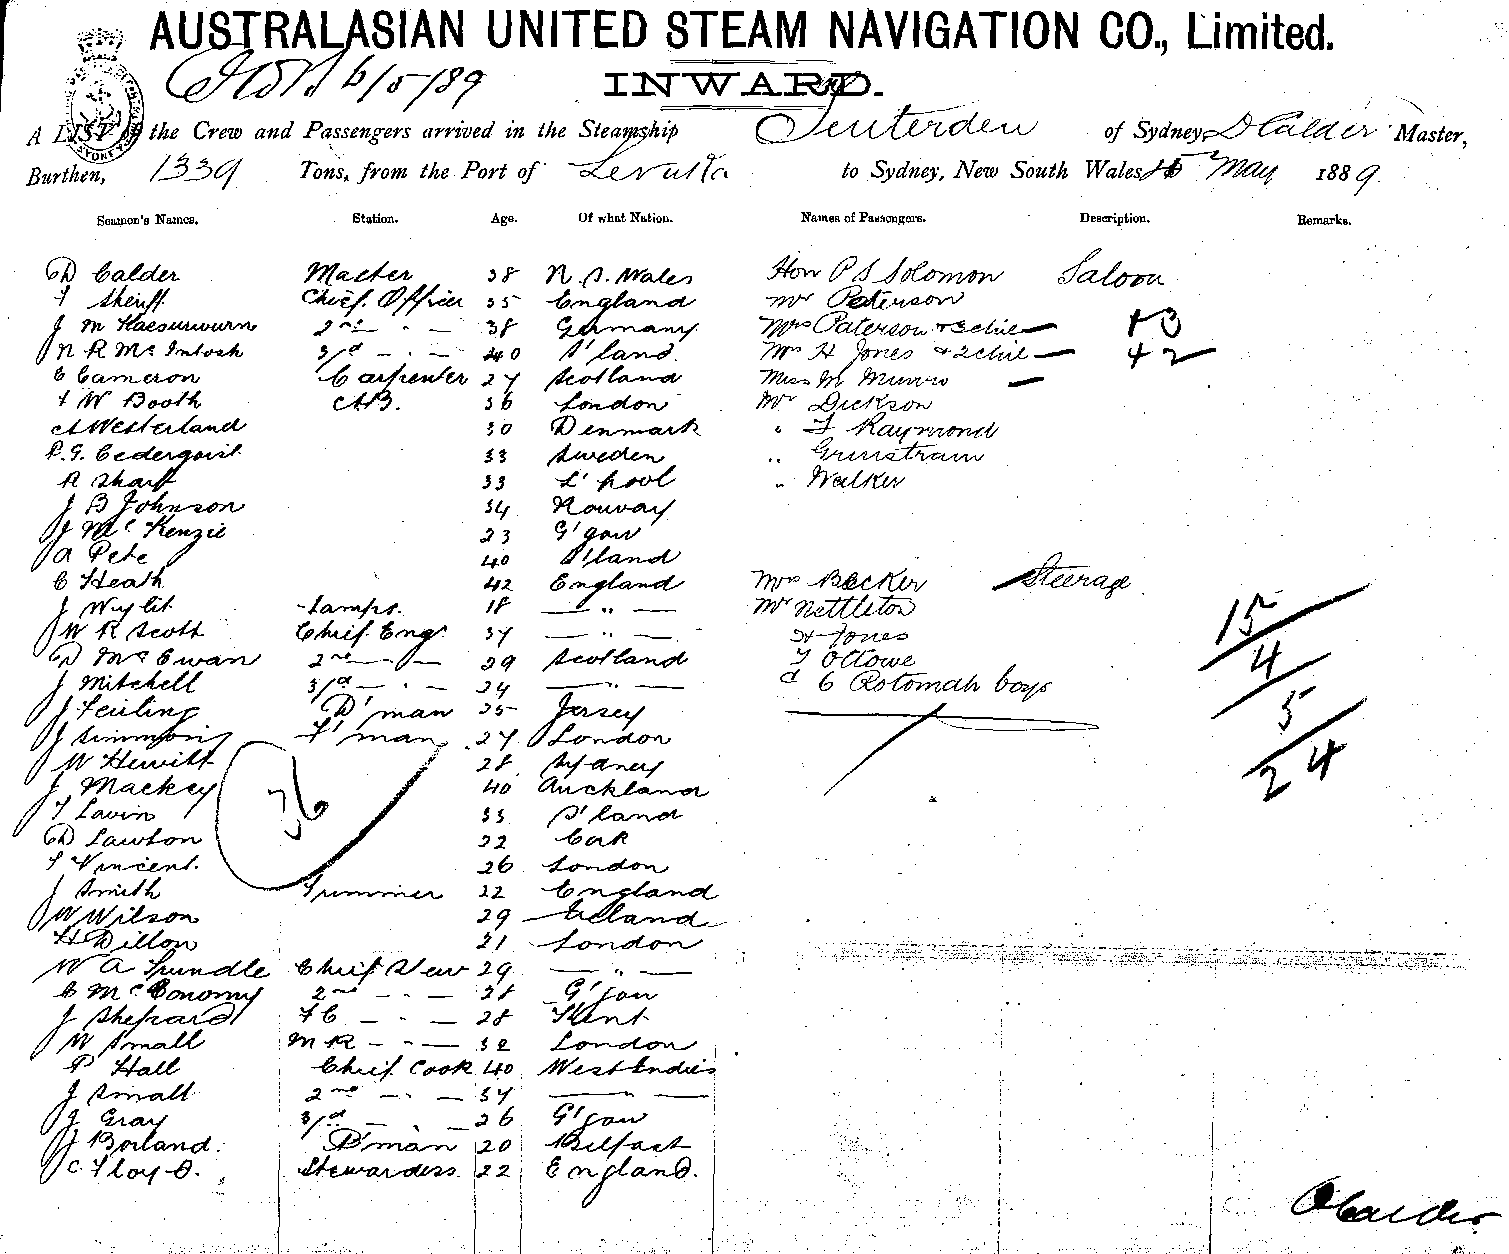 AUSTRALASIAN UNITED STEAM NAVIGATION CO., Limited.
6/5/89 INWARD.
A LIST of the Crew and Passengers arrived in the Steamship Tenterden of Sydney D Calder Master,
Burthen, 1339 Tons, from the Port of Levuka to Sydney, New South Wales May 1889.
Seamen's Names. Station. Age. Of what Nation. Names of Passengers. Description. Remarks.
D Calder Master 38 N. S. Wales Hon P S Solomon Saloon
T Sheriff Chief Officer 35 England Mr Paterson
J M 2nd " 38 Germany Mrs Paterson + 3 chil +3
N R McIntosh 3rd " 40 S'land. Mrs H Jones + 2 chil +2
C Cameron Carpenter 27 Scotland Miss M Munro
F W Booth AB. 36 London Mr Dickson
A Westerland 30 Denmark " F Raymond
P. G. Cederqvist 33 Sweden " Grinstram
R Sharp 33 L'pool " Walker
J B Johnson 34 Norway
J McKenzie 23 G'gow
A Pete 40 S'land
C Heath 42 England Mrs Becker Steerage
J Wylit Lamps. 18 " Mr Nettleton
W R Scott Chief Engr. 37 " H Jones
D McEwan 2nd " 29 Scotland F Ottowe
J Mitchell 3rd " 24 " & 6 Rotomah boys
J Feirling D'man 35 Jersey
J Simmons F'man 27 London
W Hewitt 28 Sydney
J Mackey 40 Auckland
T Lavin 33 S'land
D Lawton 22 Cork
T Vincent. 26 London
J Smith Trimmer 22 England
W Wilson 29 Ireland
H Dillon 21 London
W A Trundle Chief Stew 29 "
C McConomy 2nd " 28 G'gow
J Shepard FC " 28 Kent
W Small MR " 32 London
P Hall Chief Cook 40 West Indies
J Small 2nd " 37
J Gray 3rd " 26 G'gow
J Borland. P'man 20 Belfast
C Floyd. Stewardess 22 England.
36
15
4
5
24
D Calder